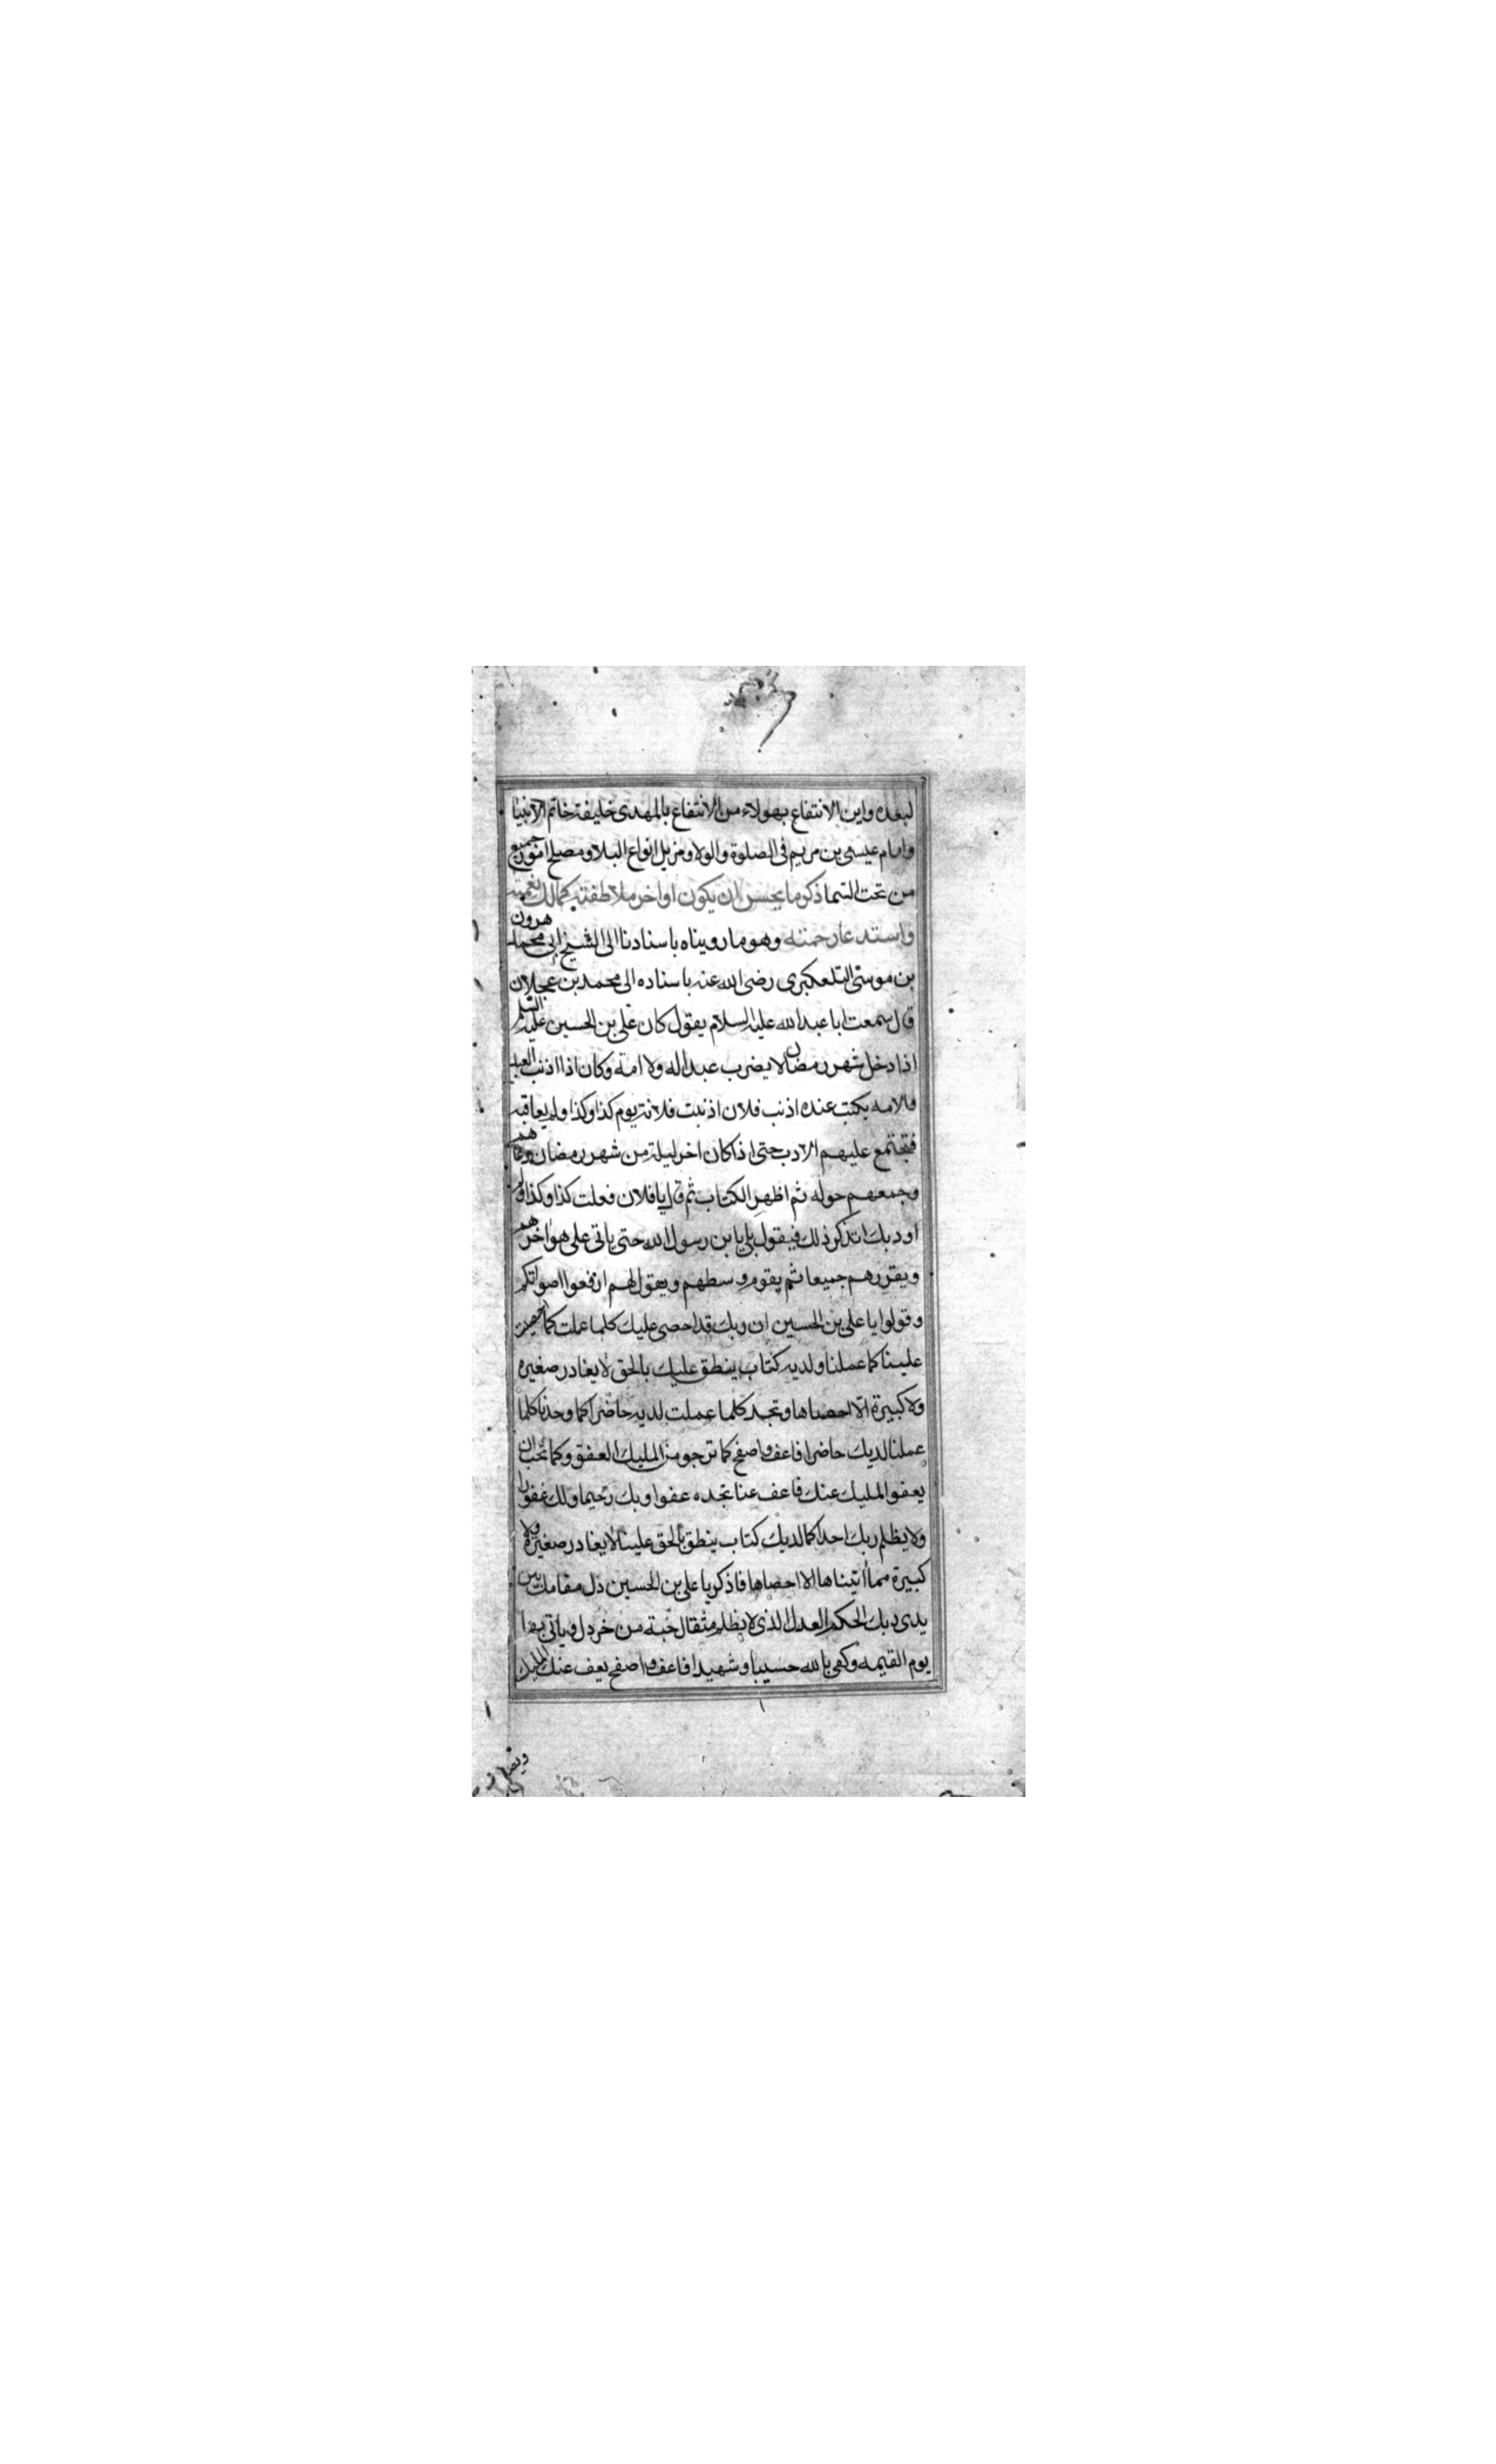 لبعده واين الانتفاع بهولاء من الانتفاع بالمهدى خليفة خاتم الانبيا
وامام عيسى بن مريم فى الصلوة والولا ومزيل انواع البلا ومصلح امور جميع
من تحت السما ذكر ما يحسن ان يكون اواخر ملاطفته لمالك نعمته
واستدعا رحمته وهو ما رويناه باسنادنا الى الشيخ ابى محمد هرون
بن موسى التلعكبرى رضى الله عنه باسناده الى محمد بن عجلان
قال سمعت ابا عبد الله عليه السلام يقول كان على بن الحسين عليه السلم
اذا دخل شهر رمضان لا يضرب عبدا له ولا امة وكان اذا اذنب العبد
والامه يكتب عنده اذنب فلان اذنبت فلانة يوم كذا وكذا ولم يعاقبه
فتجتمع عليهم الادب حتى اذا كان اخر ليلة من شهر رمضان دعاهم
وجمعهم حوله ثم اظهر الكتاب ثم قال يا فلان فعلت كذا وكذا ولم
اودبك اتذكر ذلك فيقول بلى يابن رسول الله حتى ياتى على اخرهم
ويقررهم جميعا ثم يقوم وسطهم ويقول لهم ارفعوا اصواتكم
وقولوا يا على بن الحسين ان ربك قد احصى عليك كلما عملت كما احصيت
علينا كما عملنا ولديه كتاب ينطق عليك بالحق لا يغادر صغيره
ولا كبيرة الا احصاها وتجد كلما عملت لديه حاضرا كما وجدنا كلما
عملنا لديك حاضرا فاعف واصفح كما ترجو من المليك العفو وكما تحب ان
يعفو المليك عنك فاعف عنا تجده عفوا وبك رحيما ولك غفورا
ولا يظلم ربك احدا كما لديك كتاب ينطق بالحق علينا لا يغادر صغيرة ولا
كبيرة مما اتيناها الا احصاها فاذكر يا على بن الحسين ذل مقامك بين
يدى ربك الحكم العدل الذى لا يظلم مثقال حبة من خردل وياتى بها
يوم القيمه وكفى بالله حسيبا وشهيدا فاعف واصفح يعف عنك المليك